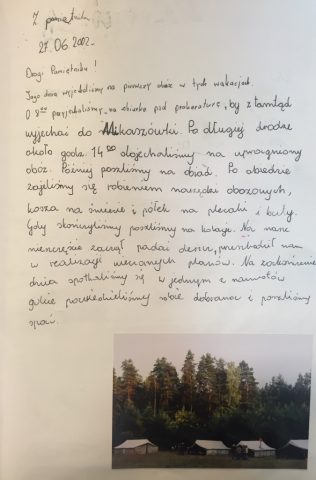 Z pamiętnika
27.06.2002.
Drogi Pamiętniku!
Tego dnia wyjechaliśmy na pierwszy obóz w tych wakacjach.
O 8:00 przyjechaliśmy na zbiórkę pod prokuraturę, by stamtąd
wyjechać do Mikaszówki. Po długiej drodze
około godz. 14:00 dojechaliśmy na upragniony
obóz. Później poszliśmy na obiad. Po obiedzie
zajęliśmy się robieniem narzędzi obozowych,
kosza na śmiecie i półek na plecaki i buty.
Gdy skończyliśmy poszliśmy na kolację. Na nasze
nieszczęście zaczął padać deszcz, przeszkodził nam
w realizacji wieczornych planów. Na zakończenie
dnia spotkaliśmy się w jednym z namiotów
gdzie powiedzieliśmy sobie dobranoc i poszliśmy
spać.